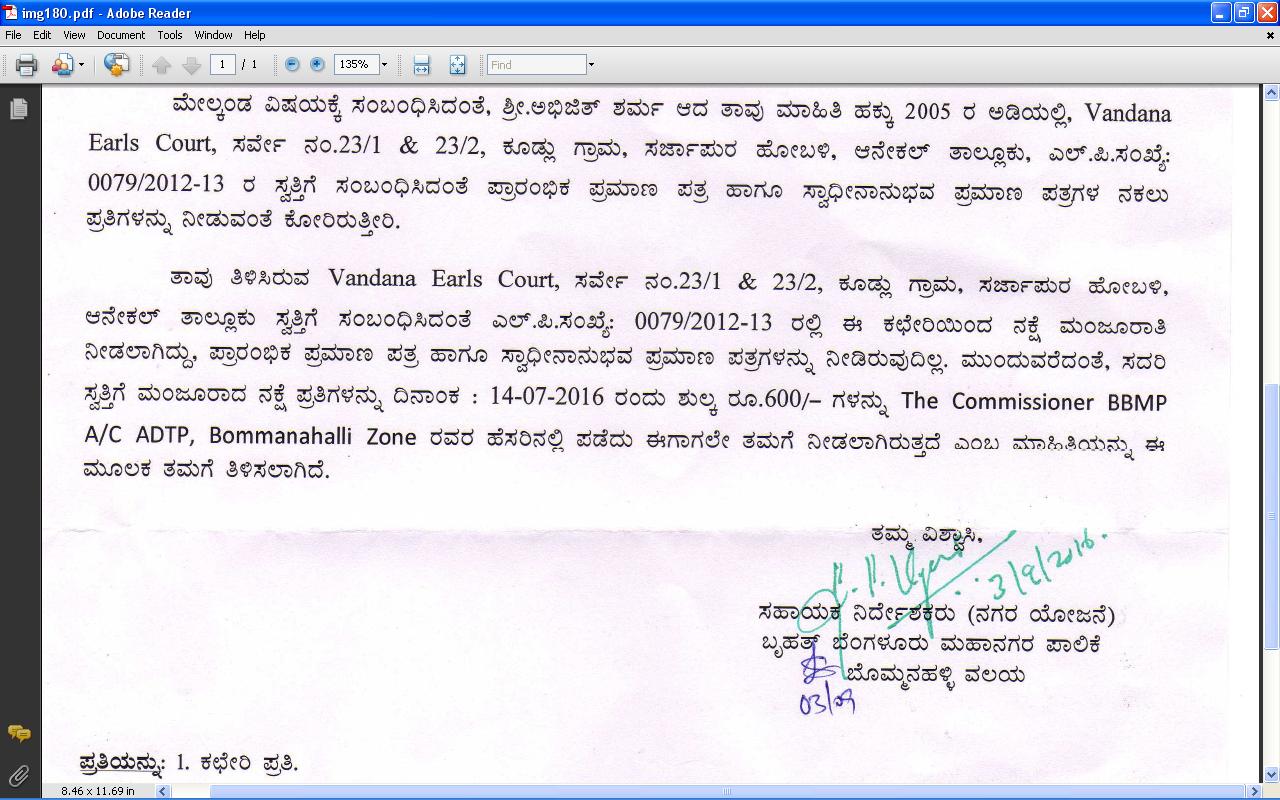 img180.pdf - Adobe Reader
File Edit View Document Tools Window Help
1 / 1 135% Find
ಮೇಲ್ಕಂಡ ವಿಷಯಕ್ಕೆ ಸಂಬಂಧಿಸಿದಂತೆ, ಶ್ರೀ.ಅಭಿಜಿತ್ ಶರ್ಮ ಆದ ತಾವು ಮಾಹಿತಿ ಹಕ್ಕು 2005 ರ ಅಡಿಯಲ್ಲಿ, Vandana
Earls Court, ಸರ್ವೇ ನಂ.23/1 & 23/2, ಕೂಡ್ಲು ಗ್ರಾಮ, ಸರ್ಜಾಪುರ ಹೋಬಳಿ, ಆನೇಕಲ್ ತಾಲ್ಲೂಕು, ಎಲ್.ಪಿ.ಸಂಖ್ಯೆ:
0079/2012-13 ರ ಸ್ವತ್ತಿಗೆ ಸಂಬಂಧಿಸಿದಂತೆ ಪ್ರಾರಂಭಿಕ ಪ್ರಮಾಣ ಪತ್ರ ಹಾಗೂ ಸ್ವಾಧೀನಾನುಭವ ಪ್ರಮಾಣ ಪತ್ರಗಳ ನಕಲು
ಪ್ರತಿಗಳನ್ನು ನೀಡುವಂತೆ ಕೋರಿರುತ್ತೀರಿ.
ತಾವು ತಿಳಿಸಿರುವ Vandana Earls Court, ಸರ್ವೇ ನಂ.23/1 & 23/2, ಕೂಡ್ಲು ಗ್ರಾಮ, ಸರ್ಜಾಪುರ ಹೋಬಳಿ,
ಆನೇಕಲ್ ತಾಲ್ಲೂಕು ಸ್ವತ್ತಿಗೆ ಸಂಬಂಧಿಸಿದಂತೆ ಎಲ್.ಪಿ.ಸಂಖ್ಯೆ: 0079/2012-13 ರಲ್ಲಿ ಈ ಕಛೇರಿಯಿಂದ ನಕ್ಷೆ ಮಂಜೂರಾತಿ
ನೀಡಲಾಗಿದ್ದು, ಪ್ರಾರಂಭಿಕ ಪ್ರಮಾಣ ಪತ್ರ ಹಾಗೂ ಸ್ವಾಧೀನಾನುಭವ ಪ್ರಮಾಣ ಪತ್ರಗಳನ್ನು ನೀಡಿರುವುದಿಲ್ಲ. ಮುಂದುವರೆದಂತೆ, ಸದರಿ
ಸ್ವತ್ತಿಗೆ ಮಂಜೂರಾದ ನಕ್ಷೆ ಪ್ರತಿಗಳನ್ನು ದಿನಾಂಕ : 14-07-2016 ರಂದು ಶುಲ್ಕ ರೂ.600/– ಗಳನ್ನು The Commissioner BBMP
A/C ADTP, Bommanahalli Zone ರವರ ಹೆಸರಿನಲ್ಲಿ ಪಡೆದು ಈಗಾಗಲೇ ತಮಗೆ ನೀಡಲಾಗಿರುತ್ತದೆ ಎಂಬ ಮಾಹಿತಿಯನ್ನು ಈ
ಮೂಲಕ ತಮಗೆ ತಿಳಿಸಲಾಗಿದೆ.
ತಮ್ಮ ವಿಶ್ವಾಸಿ,
3/9/2016.
ಸಹಾಯಕ ನಿರ್ದೇಶಕರು (ನಗರ ಯೋಜನೆ)
ಬೃಹತ್ ಬೆಂಗಳೂರು ಮಹಾನಗರ ಪಾಲಿಕೆ
ಬೊಮ್ಮನಹಳ್ಳಿ ವಲಯ
03/09
ಪ್ರತಿಯನ್ನು: 1. ಕಛೇರಿ ಪ್ರತಿ.
8.46 x 11.69 in